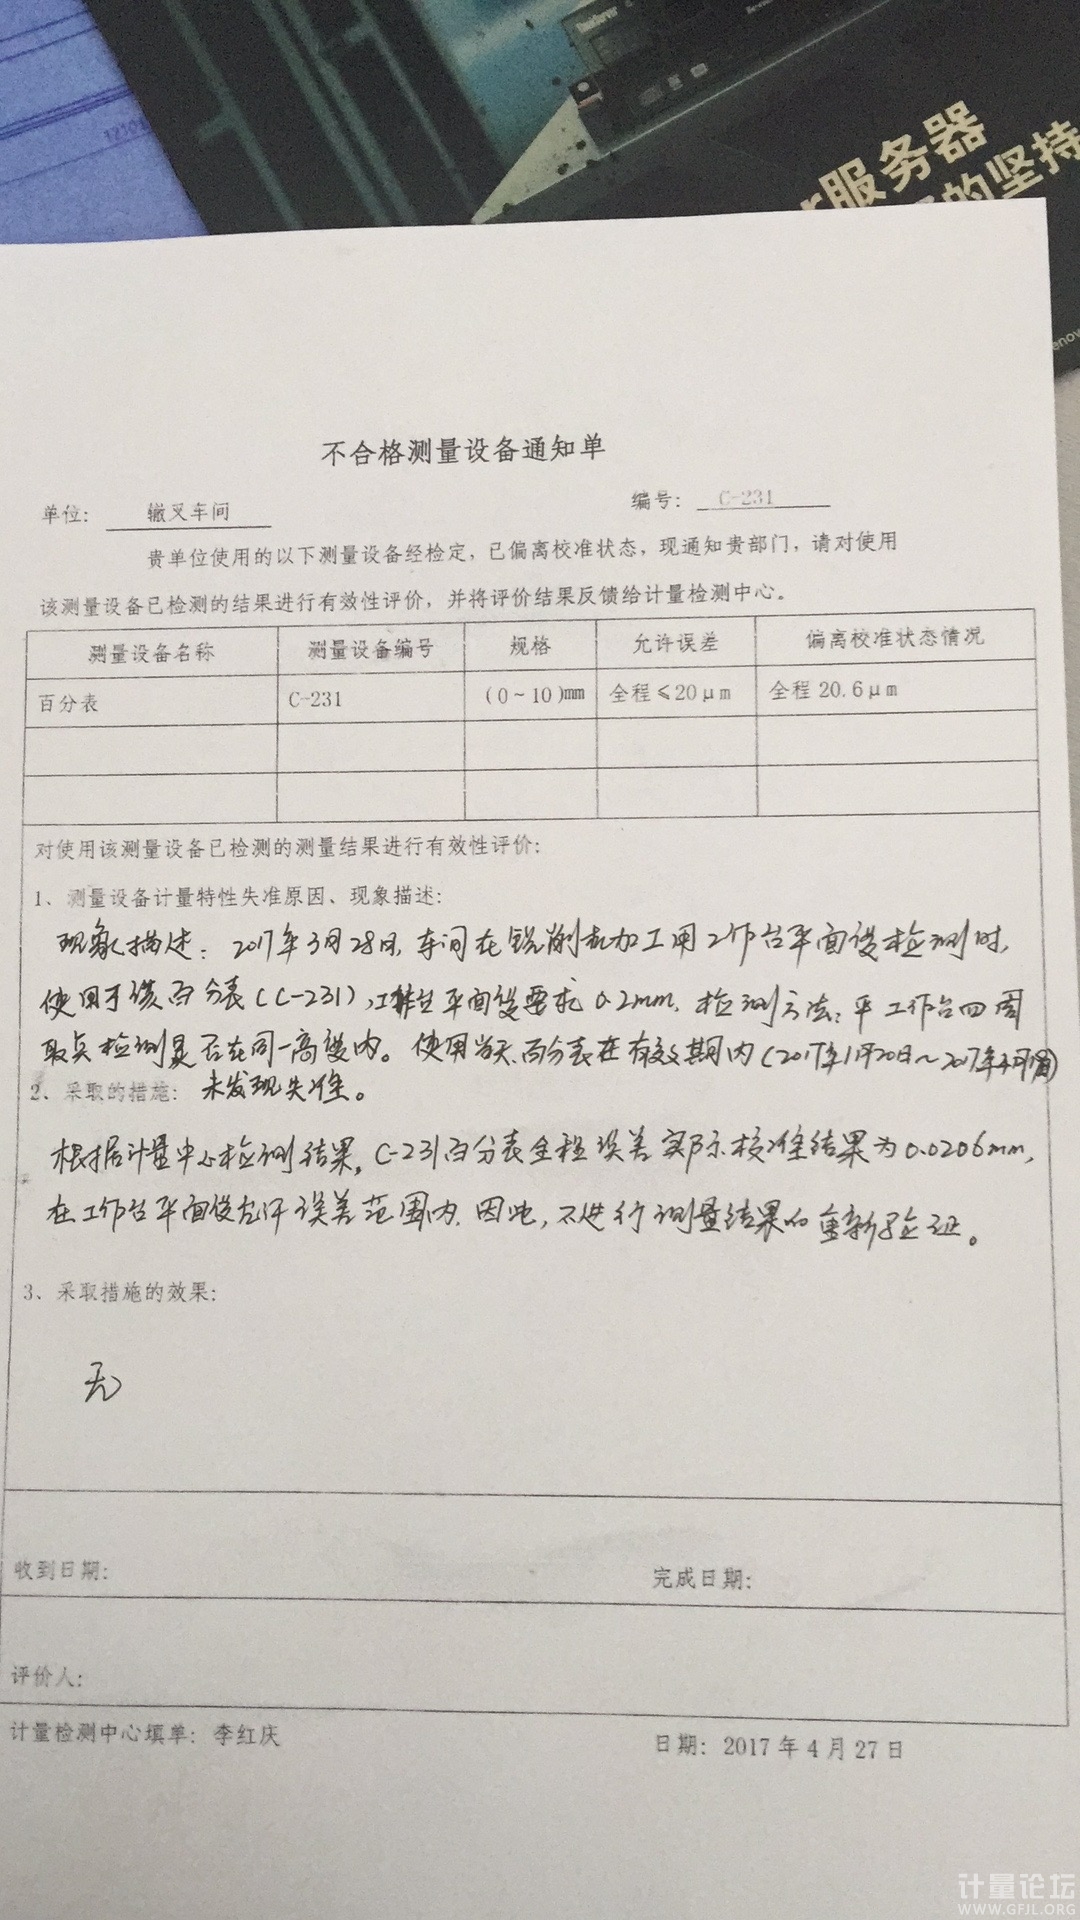 ThinkServer
r服务器
的坚持
不合格测量设备通知单
单位： 辙叉车间 编号： C-231
贵单位使用的以下测量设备经检定，已偏离校准状态，现通知贵部门，请对使用
该测量设备已检测的结果进行有效性评价，并将评价结果反馈给计量检测中心。
测量设备名称 测量设备编号 规格 允许误差 偏离校准状态情况
百分表 C-231 (0～10)mm 全程≤20μm 全程 20.6μm
对使用该测量设备已检测的测量结果进行有效性评价：
1、测量设备计量特性失准原因、现象描述：
现象描述：2017年3月28日，车间在铣削机加工用工作台平面度检测时，
使用了该百分表(C-231)，工作台平面度要求0.2mm，检测方法：平工作台四周
取点检测是否在同一高度内。使用当天，百分表在有效期内(2017年1月20日～2017年4月
2、采取的措施： 未发现失准。
根据计量中心检测结果，C-231百分表全程误差实际校准结果为0.0206mm，
在工作台平面度允许误差范围内，因此，不进行测量结果的重新验证。
3、采取措施的效果：
无
收到日期： 完成日期：
评价人：
计量检测中心填单：李红庆 日期：2017年4月27日
计量论坛
WWW.GFJL.ORG